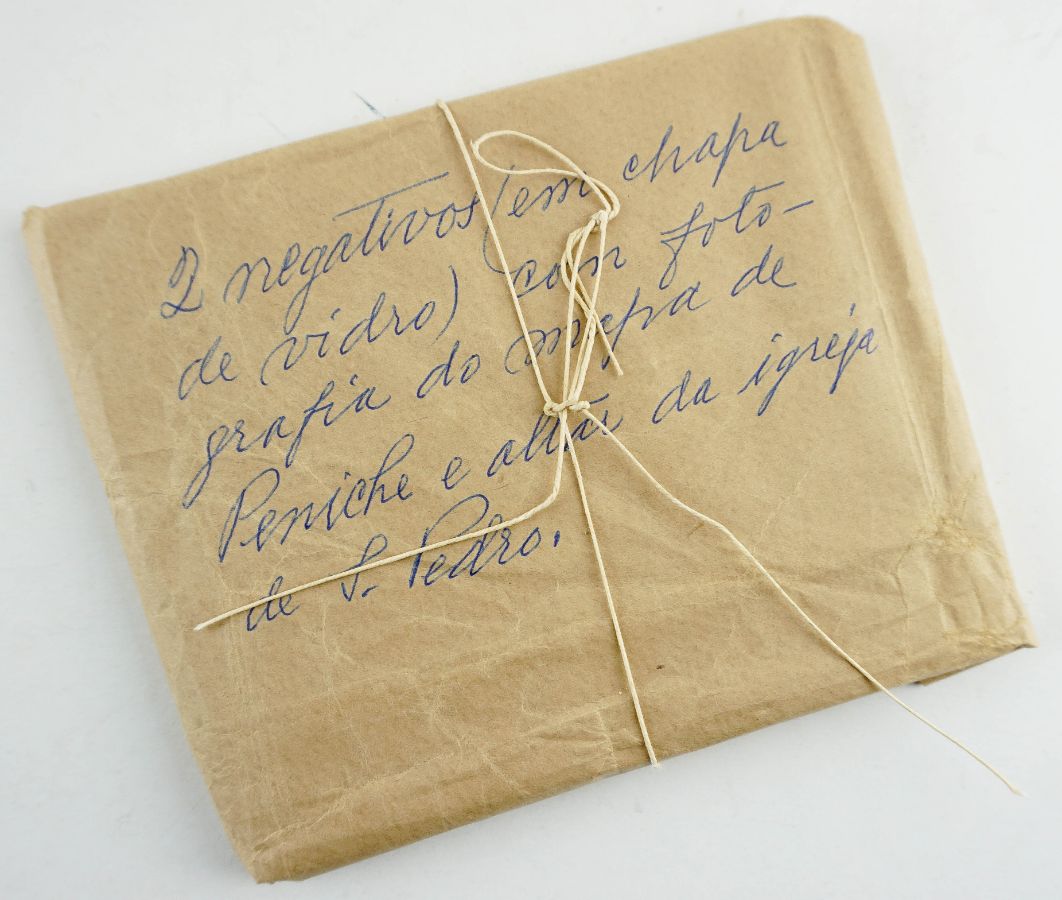 2 negativos (em chapa
de vidro) com foto-
grafia do mapa de
Peniche e altar da igreja
de S. Pedro.